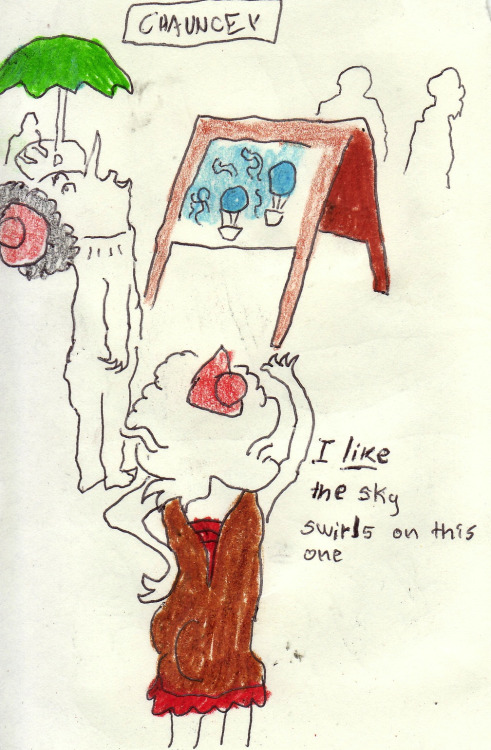 CHAUNCEY
I like
the sky
swirls on this
one